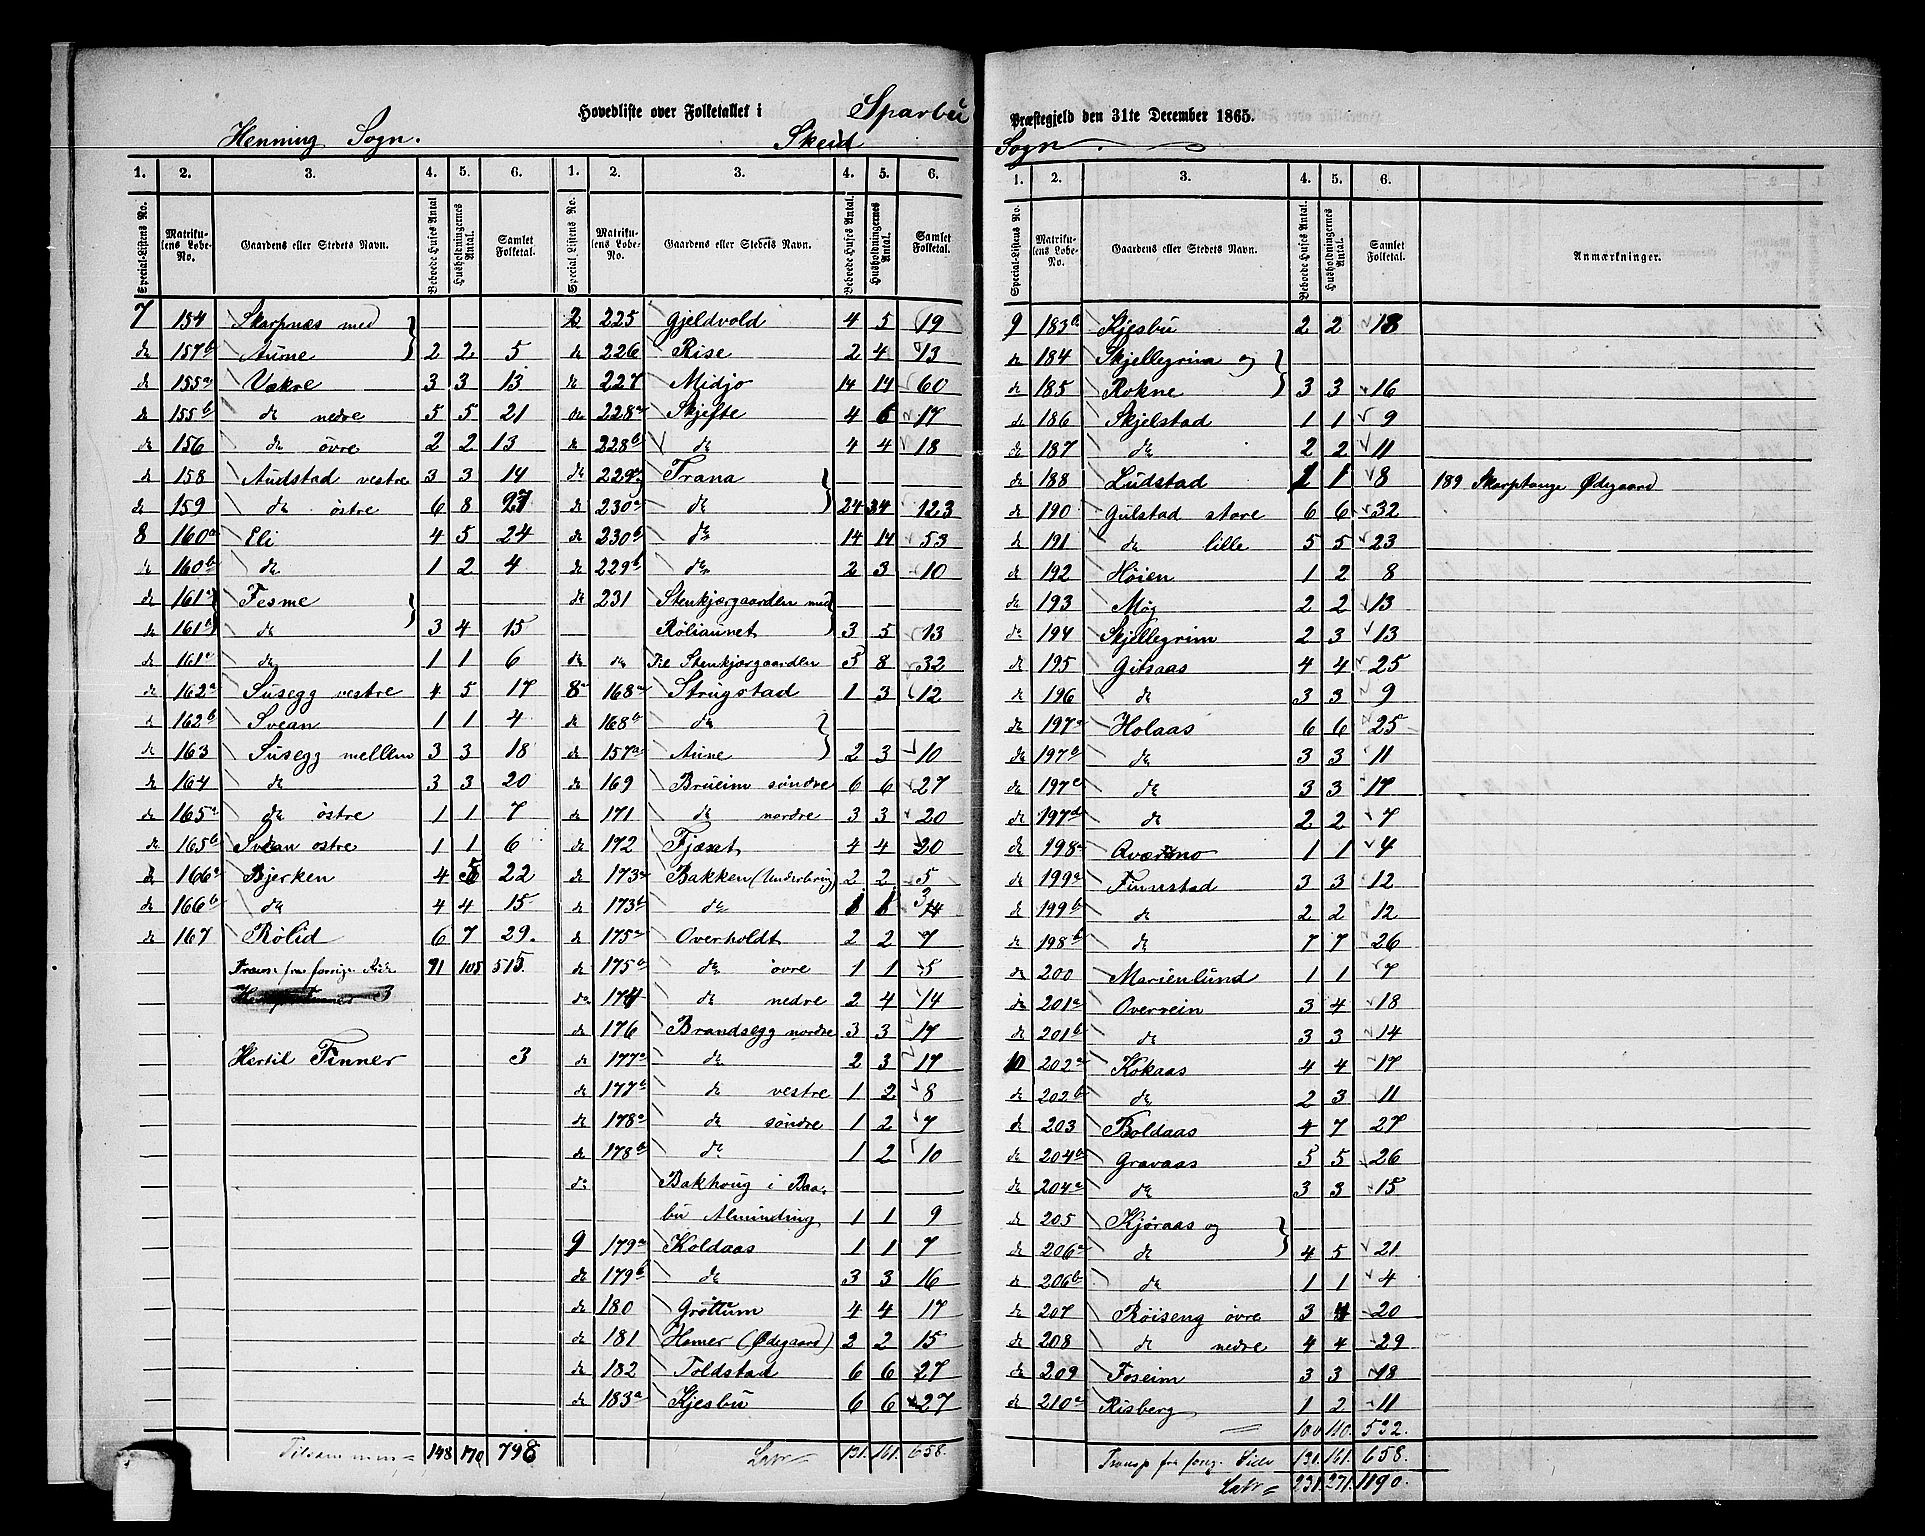 Hovedliste over Folketallet i Sparbu Præstegjeld den 31te December 1865.
Henning Sogn.
Skeid Sogn.
1. 2. 3. 4. 5. 6.
Special-Listens No. Matrikulens Løbe-No. Gaardens eller Stedets Navn. Beboede Huses Antal Husholdningernes Antal. Samlet Folketal.
7 154 Skarpnæs med
do 157b Aune 2 2 5
do 155a Vekre 3 3 13
do 155b do nedre 5 5 21
do 156 do øvre 2 2 13
do 158 Audstad vestre 3 3 14
do 159 do østre 6 8 27
8 160a Eli 4 5 24
do 160b do 1 2 4
do 161a Fesme
do 161b do 3 4 15
do 161c do 1 1 6
do 162a Susegg vestre 4 5 17
do 162b Svean 1 1 4
do 163 Susegg mellem 3 3 18
do 164 do 3 3 20
do 165a do østre 1 1 7
do 165b Svean østre 1 1 6
do 166a Bjerken 4 5 22
do 166b do 4 4 15
do 167 Rølid 6 7 29.
Transp. fra forrige Side 91 105 515.
Hertil Finner 3
Tilsammen 148 170 798
1. 2. 3. 4. 5. 6.
Special Listens No. Matrikulens Løbe-No. Gaardens eller Stedets Navn. Beboede Huses Antal. Husholdningernes Antal. Samlet Folketal.
2 225 Gjeldvold 4 5 19
do 226 Rise 2 4 13
do 227 Midjo 14 14 60
do 228a Skjefte 4 6 17
do 228b do 4 4 18
do 229a Trana
do 230a do 24 34 123
do 230b do 14 14 53
do 229b do 2 3 10
do 231 Stenkjærgaarden med
Røliaunet 3 5 13
do do Stenkjærgaarden 5 8 32
8 168a Strugstad 1 3 12
do 168b do
do 157a Aune 2 3 10
do 169 Brueim søndre 6 6 27
do 171 do nordre 3 3 20
do 172 Fjæset 4 4 20
do 173a Bakken (Underbring) 2 2 5
do 173b do 1 1 3
do 175a Overholdt 2 2 7
do 175b do øvre 1 1 5
do 174 do nedre 2 4 14
do 176 Brandsegg nordre 3 3 17
do 177a do 2 3 17
do 177b do vestre 1 2 8
do 178a do søndre 1 2 7
do 178b do 1 2 10
do Bakhoug i Baa-
bu Alminding 1 1 9
9 179a Koldaas 1 1 7
do 179b do 3 3 16
do 180 Grøttum 4 4 17
do 181 Hamer (Ødegaard) 2 2 15
do 182 Toldstad 6 6 27
do 183a Kjesbu 6 6 27
Latr 131. 161. 658.
1. 2. 3. 4. 5. 6.
Special-Listens No. Matrikulens Løbe-No. Gaardens eller Stedets Navn. Beboede Huses Antal. Husholdningernes Antal. Samlet Folketal. Anmærkninger.
9 183b Kjesbu 2 2 18
do 184 Skjellegrim og
do 185 Rokne 3 3 16
do 186 Skjelstad 1 1 9
do 187 do 2 2 11
do 188 Ludstad 1 1 8 189 Skarptange Ødegaard
do 190 Gulstad store 6 6 32
do 191 do lille 5 5 23
do 192 Høien 1 2 8
do 193 Møg 2 2 13
do 194 Skjellegrim 2 3 13
do 195 Gilsaas 4 4 25
do 196 do 3 3 9
do 197a Holaas 6 6 25
do 197b do 3 3 11
do 197c do 3 3 17
do 197d do 2 2 7
do 198a Qværno 1 1 4
do 199a Finnstad 3 3 12
do 199b do 2 2 12
do 198b do 7 7 26
do 200 Marienlund 1 1 7
do 201a Overrein 3 4 18
do 201b do 3 3 14
10 202a Kokaas 4 4 17
do 202b do 2 3 11
do 203 Boldaas 4 7 27
do 204b Gravaas 5 5 26
do 204a do 3 3 15
do 205 Kjøraas og
do 206a do 4 5 21
do 206b do 1 1 4
do 207 Røiseng øvre 3 4 20
do 208 do nedre 4 4 29
do 209 Foseim 3 3 18
do 210a Risberg 1 2 11
100 110. 532.
Transp fra forrig. Side 131. 161. 658.
Latr 231. 271. 1190.